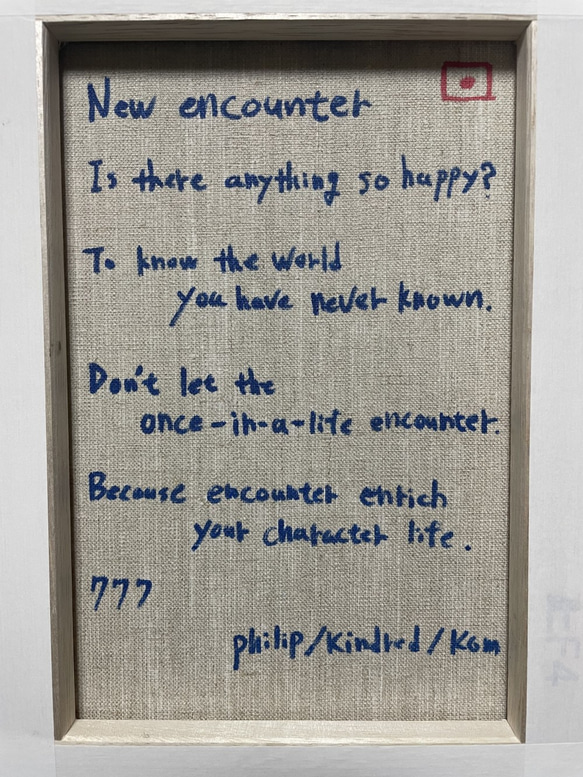 New encounter
Is there anything so happy?
To know the world
you have never known.
Don't let the
once-in-a-life encounter.
Because encounter enrich
your character life.
777
philip/Kindred/Kom